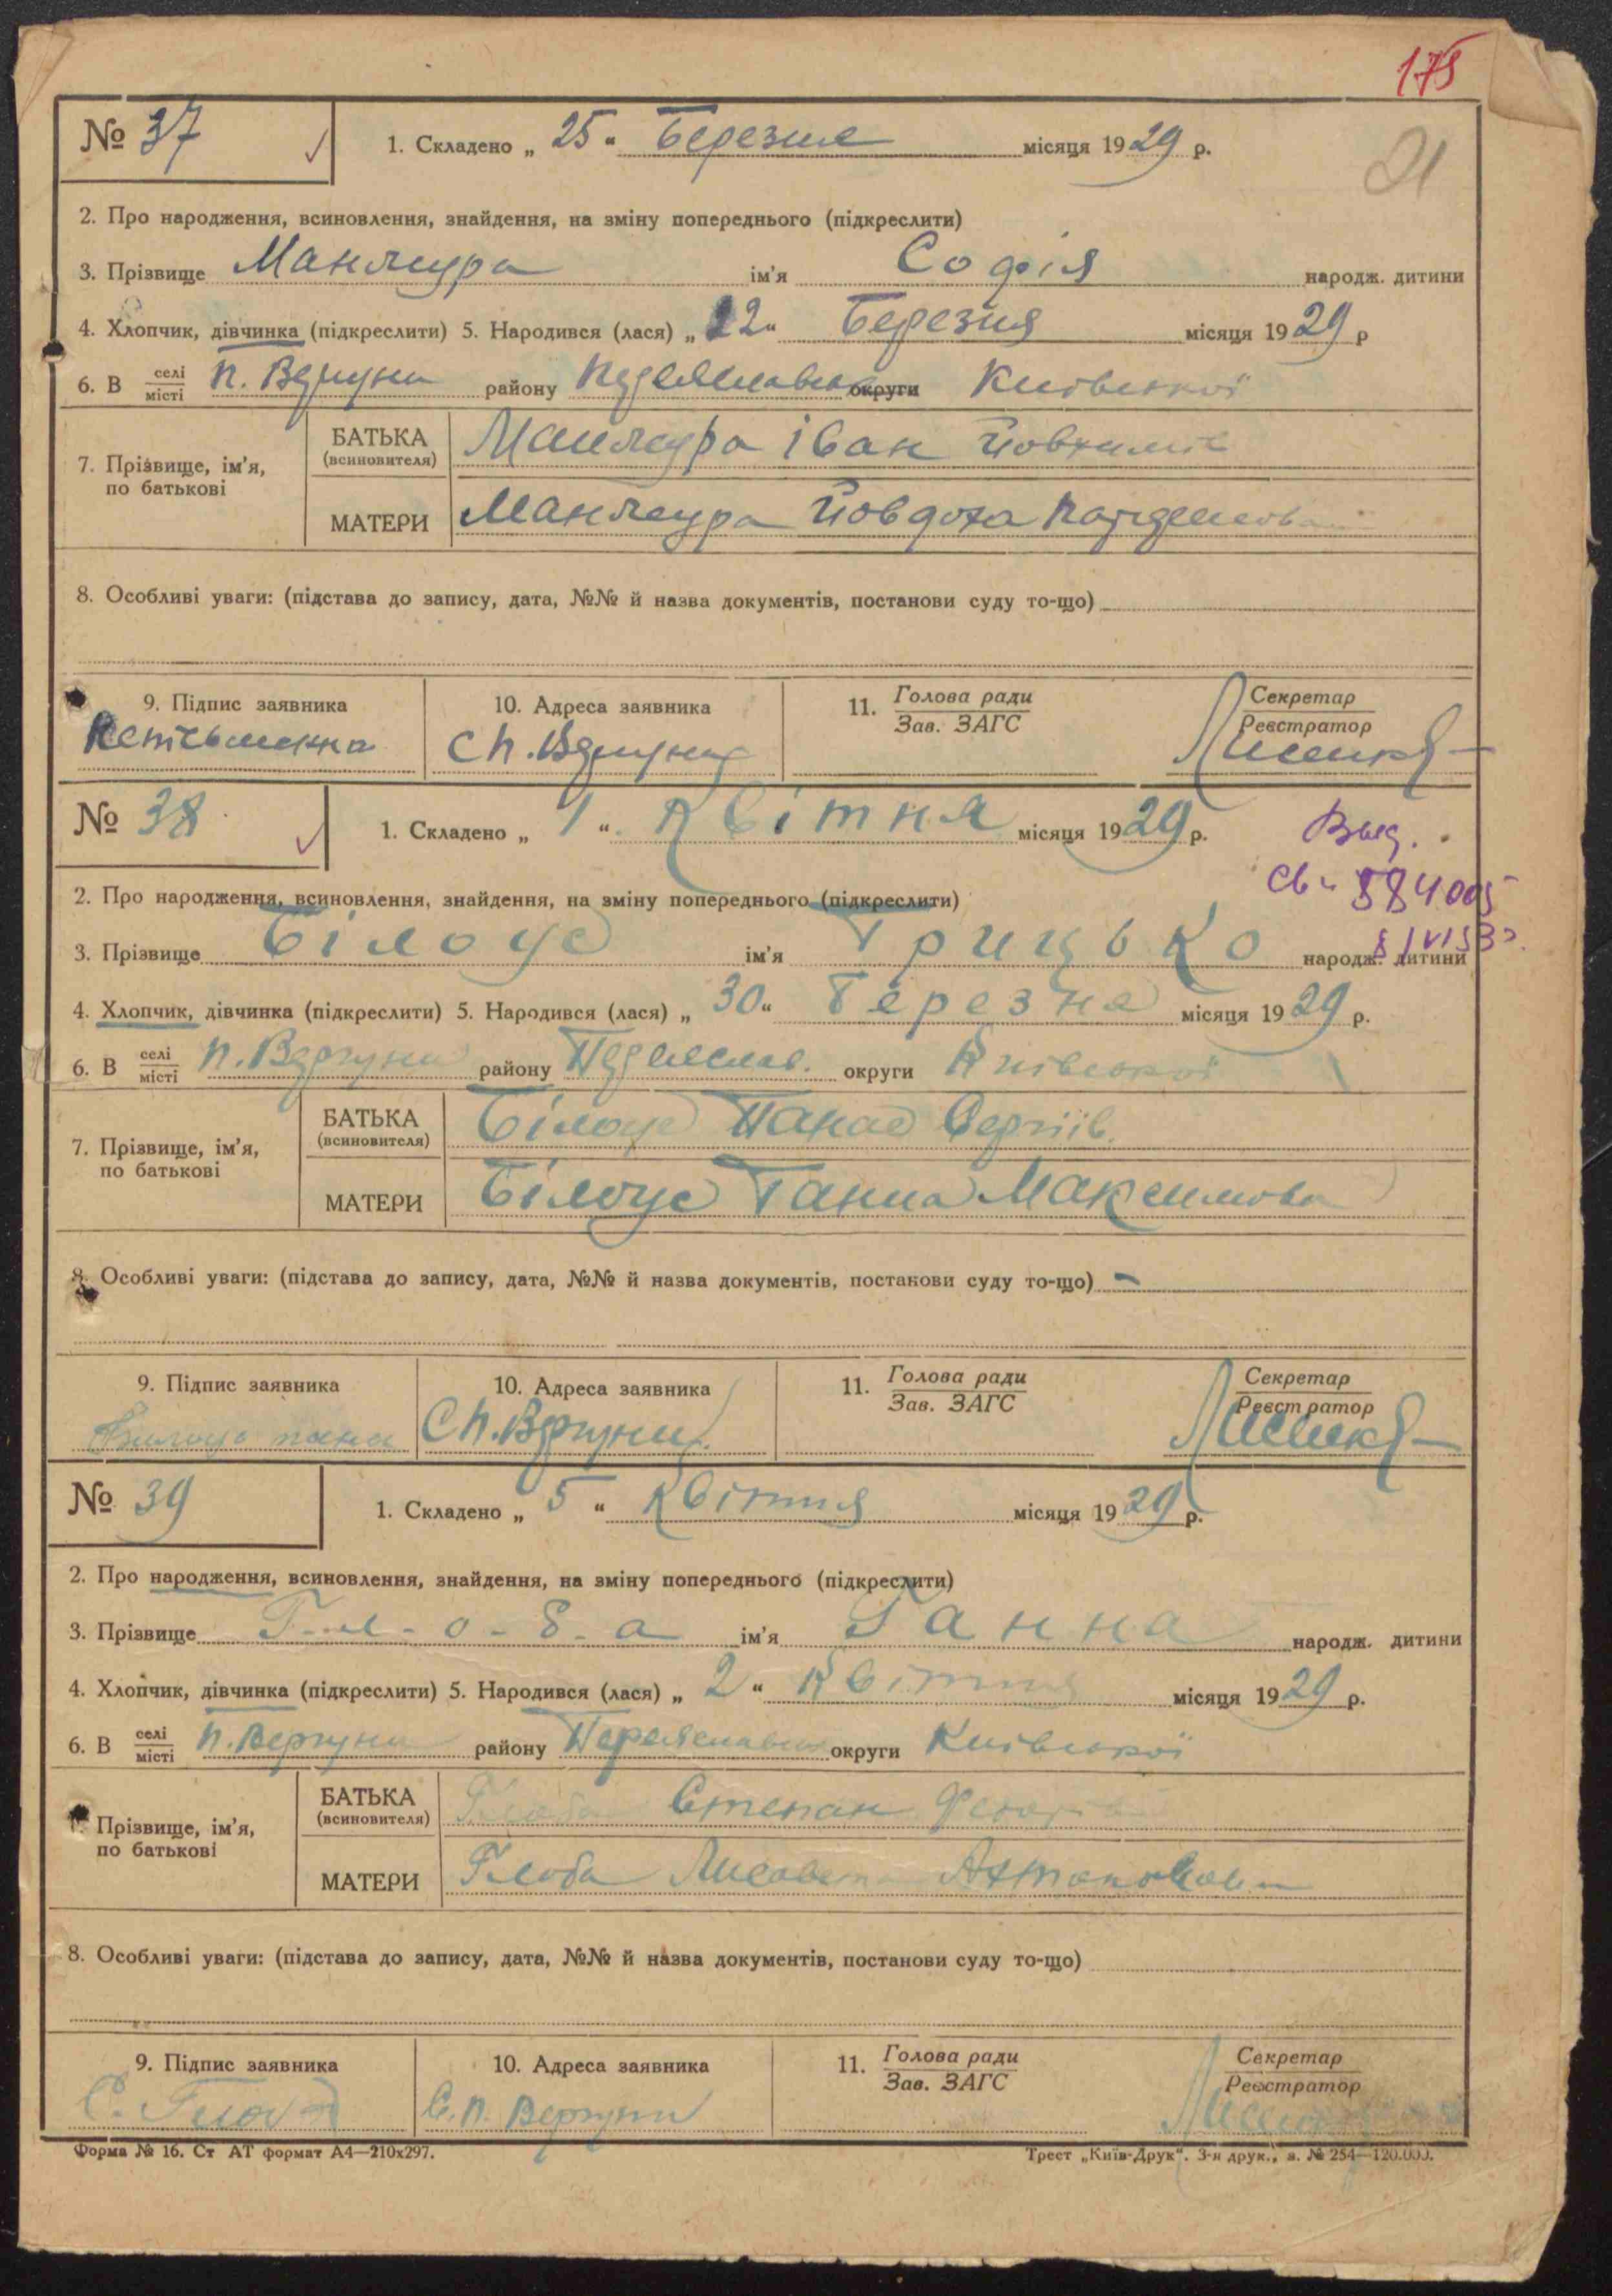 175
21
№ 37
1. Складено „ 25 “ Березня місяця 1929 р.
2. Про народження, всиновлення, знайдення, на зміну попереднього (підкреслити)
3. Прізвище ім'я Софія народж. дитини
4. Хлопчик, дівчинка (підкреслити) 5. Народився (лася) „ 22 “ Березня місяця 1929 р
6. В селі місті п. Вергуни району округи Київської
7. Прізвище, ім'я, по батькові
БАТЬКА (всиновителя) Іван
МАТЕРИ Йовдоха
8. Особливі уваги: (підстава до запису, дата, №№ й назва документів, постанови суду то-що)
9. Підпис заявника 10. Адреса заявника 11. Голова ради Зав. ЗАГС Секретар Реєстратор
с п. Вергуни
№ 38
1. Складено „ 1 “ Квітня місяця 1929 р.
Выд.
св 584005
2. Про народження, всиновлення, знайдення, на зміну попереднього (підкреслити)
3. Прізвище Білоус ім'я Грицько народж. дитини
4. Хлопчик, дівчинка (підкреслити) 5. Народився (лася) „ 30 “ Березня місяця 1929 р.
6. В селі місті п. Вергуни району Переяслав. округи Київської
7. Прізвище, ім'я, по батькові
БАТЬКА (всиновителя) Білоус Панас Сергіів.
МАТЕРИ Білоус Ганна Максимова
8. Особливі уваги: (підстава до запису, дата, №№ й назва документів, постанови суду то-що) -
9. Підпис заявника 10. Адреса заявника 11. Голова ради Зав. ЗАГС Секретар Реєстратор
С п. Вергуни
№ 39
1. Складено „ 5 “ Квітня місяця 1929 р.
2. Про народження, всиновлення, знайдення, на зміну попереднього (підкреслити)
3. Прізвище Г-л-о-б-а ім'я Ганна народж. дитини
4. Хлопчик, дівчинка (підкреслити) 5. Народився (лася) „ 2 “ Квітня місяця 1929 р.
6. В селі місті п. Вергуни району округи Київської
Прізвище, ім'я, по батькові
БАТЬКА (всиновителя) Глоба Степан
МАТЕРИ Глоба
8. Особливі уваги: (підстава до запису, дата, №№ й назва документів, постанови суду то-що)
9. Підпис заявника 10. Адреса заявника 11. Голова ради Зав. ЗАГС Секретар Реєстратор
С. Глоба С. п. Вергуни
Форма № 16. Ст АТ формат А4—210x297. Трест „Київ-Друк“. 3-я друк., з. № 254—120.000.